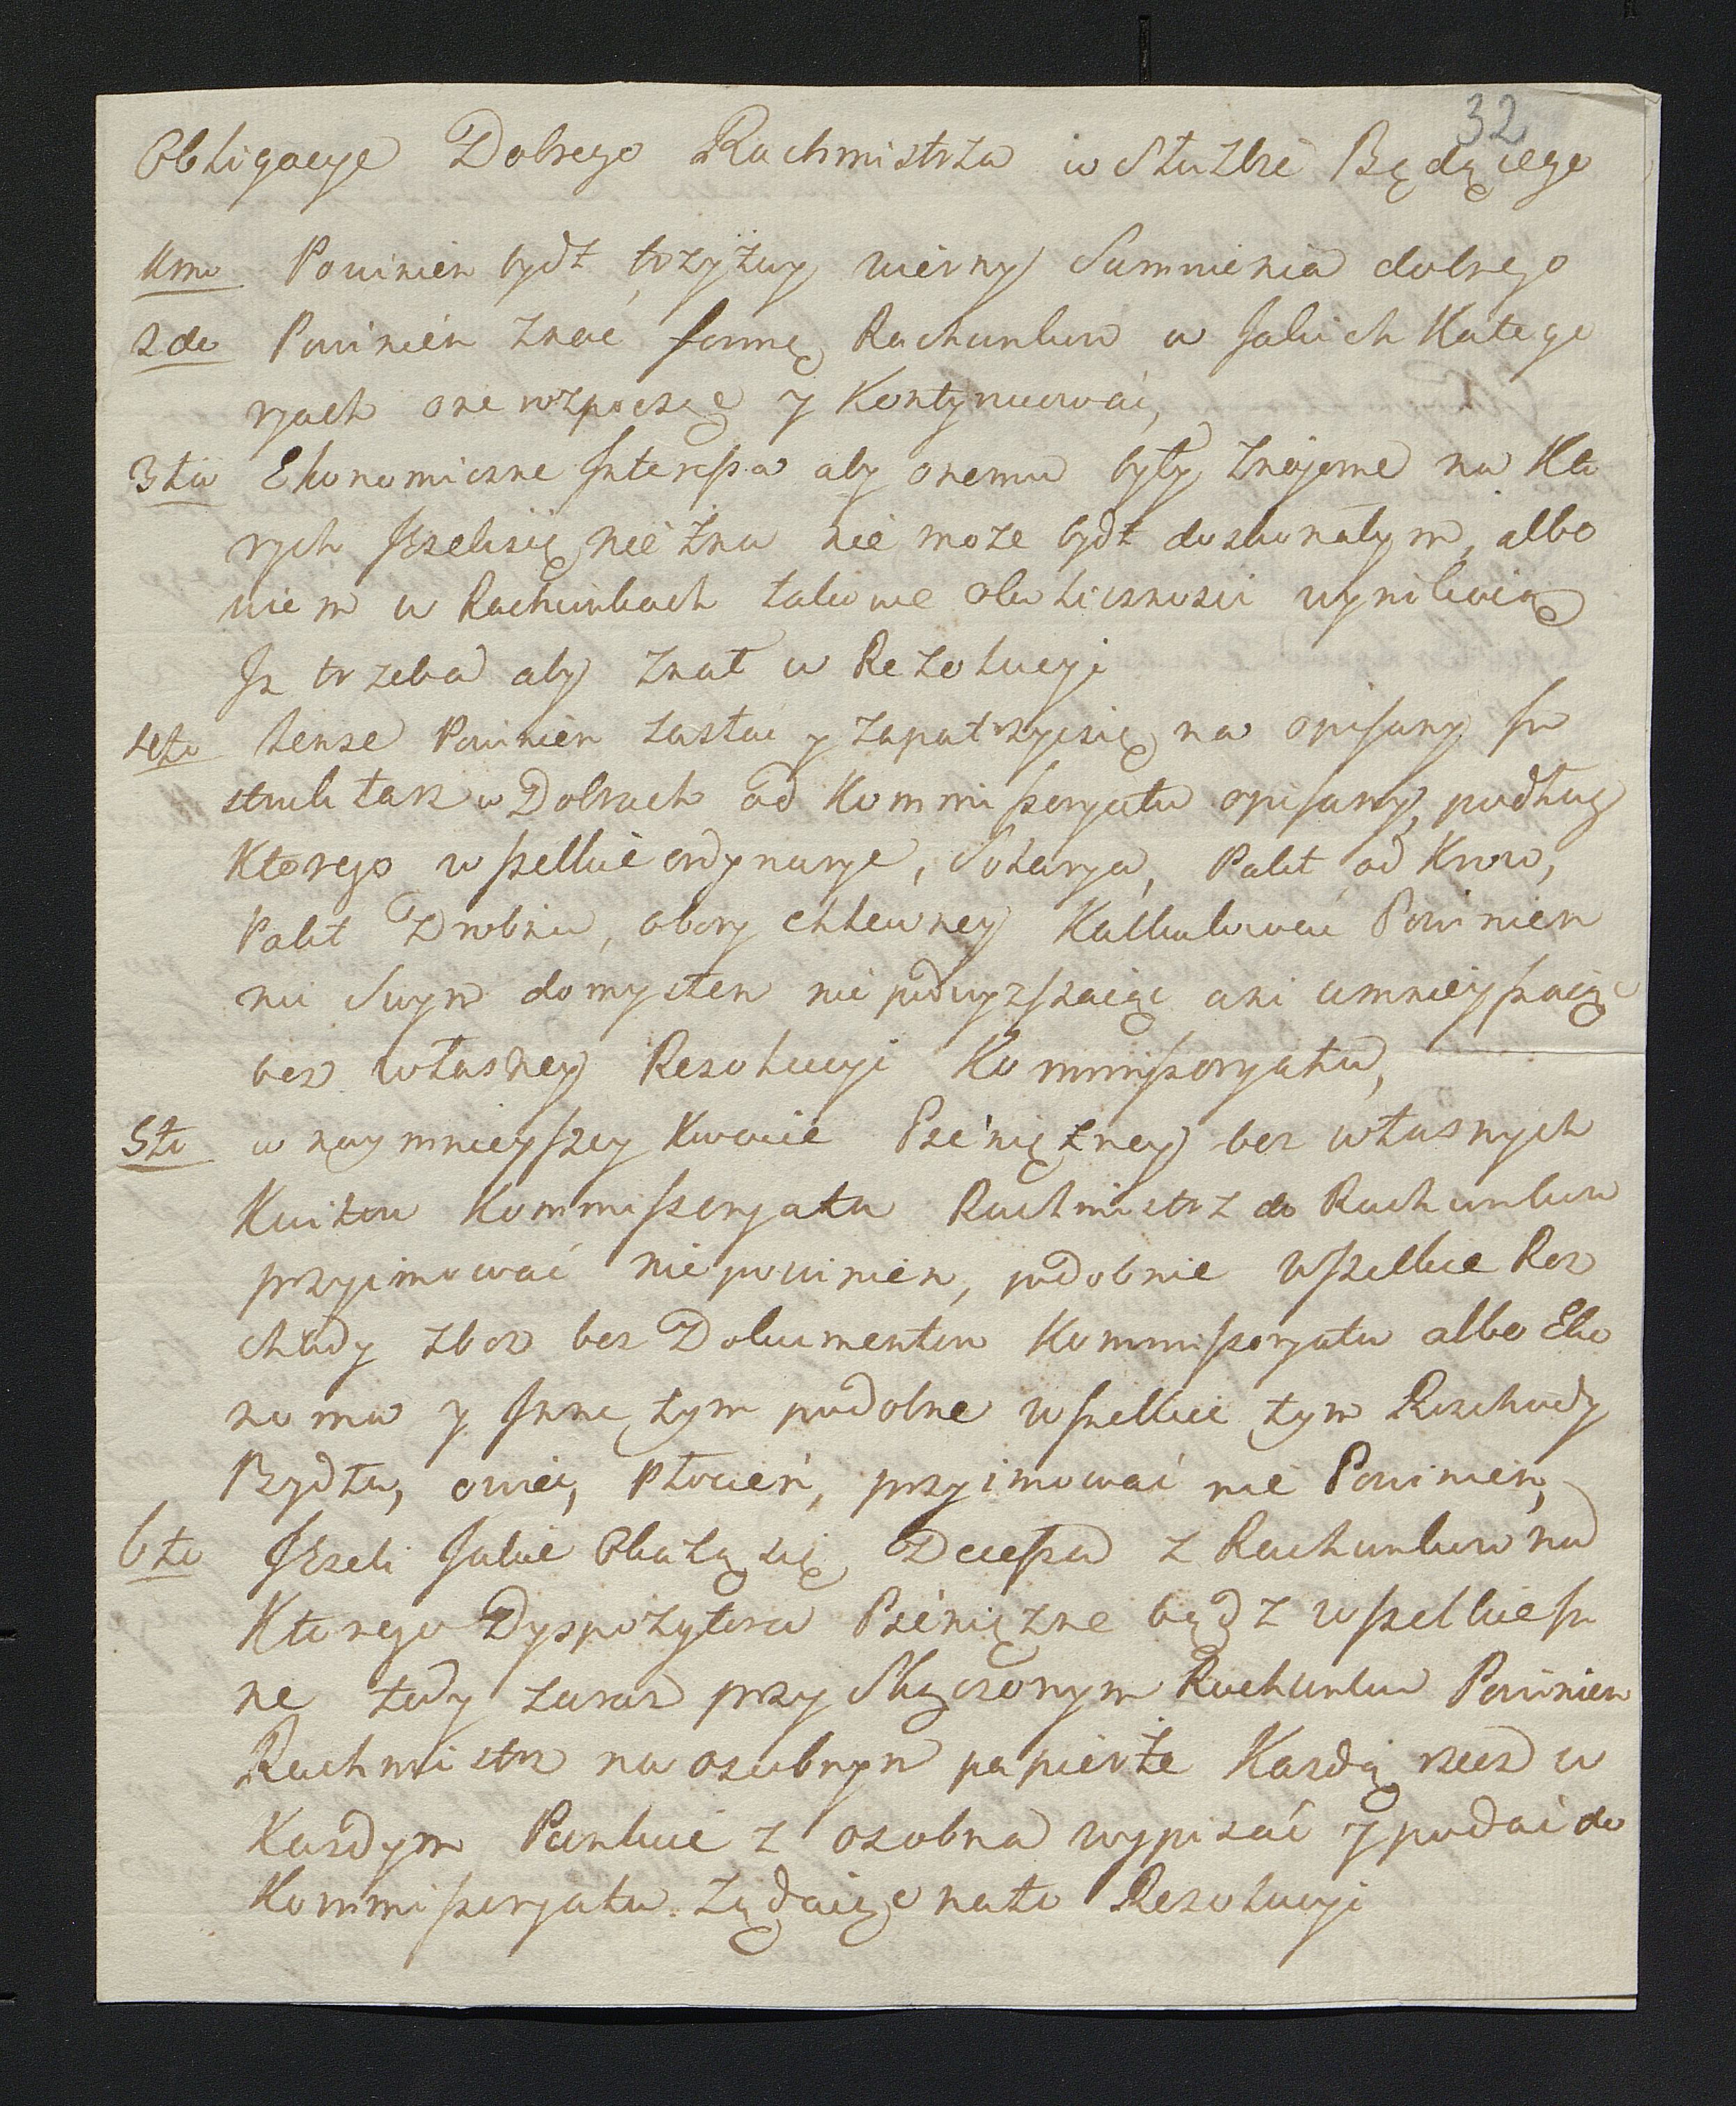 32
Obligacye Dobrego Rachmistrza w Służbie Będącego
1mo Powinien bydź trzyźwy wierny Sumnienia dobrego
2do Powinien znać formę Rachunkow w Jakich Katego
ryach one rozpoczę y Kontynuować,
3tio Ekonomiczne Interessa aby onemu były znajome na Kto
rych Jżelisię nie zna nie moze bydź doskonałym, albo
wiem w Rachunkach takowe okoliczności wynikaią
Jz trzeba aby znał w Rezolucyi
4to tenze Powinien zastać y zapatrzycisię na opisany In
struktarz w Dobrach od Kommissoryatu opisany, podług
Ktorego wszelkie ordynarye, Solarya, Pakt od Krow,
Pakt Drobiu, obory chlewney Kalkulować Powinien
nic Swym domysłem nie podwyzszaiąc ani umnieyszaiąc
bez własney Rezolucyi Kommissoryatu,
5to w naymnieyszey Kwocie Pieniężney bez własnych
Kwitow Kommissoryatu Rachmistrz do Rachunkow
przyimować nie powinien, podobnie wszelkie Roz
chody zboz bez Dokumentow Kommissoryatu albo Eko
noma y Inne tym podobne wszelkie tym Rozchody
Bydła, owiec, Płocień, przyimować nie Powinien,
6to Jżeli Jakie Okażą się Decessa z Rachunkow na
Ktorego Dyspozytora Pieniężne bądz wszelkie In
ne tedy zaraz przy Skączonym Rachunku Powinien
Rachmistrz na osobnym papierze Kazdą rzecz w
Kazdym Punkcie z osobna wypisać y podać do
Kommissoryatu żądaiąc nato Rezolucyi